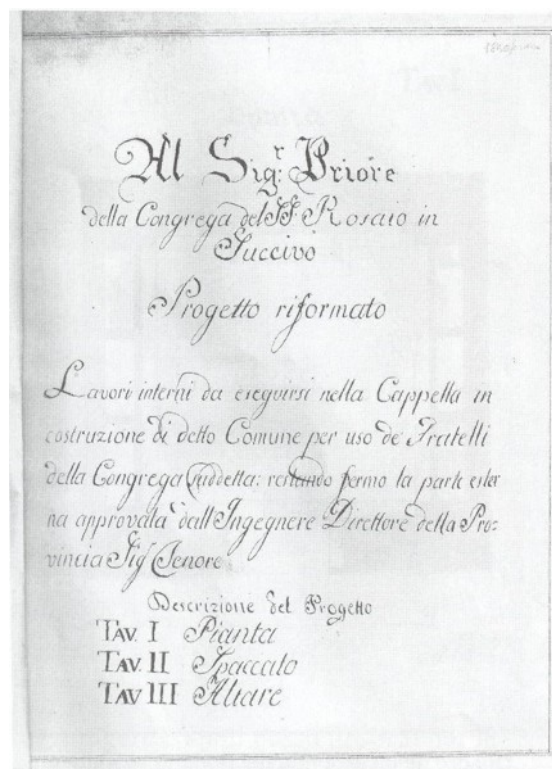 Al Sig.r Priore
della Congrega del SS. Rosaio in
Succivo
Progetto riformato
Lavori interni da eseguirsi nella Cappella in
costruzione di detto Comune per uso de' Fratelli
della Congrega suddetta: restando fermo la parte ester
na approvata dall'Ingegnere Direttore della Pro=
vincia Sig.r
Descrizione del Progetto
TAV. I Pianta
TAV. II Spaccato
TAV III Altare